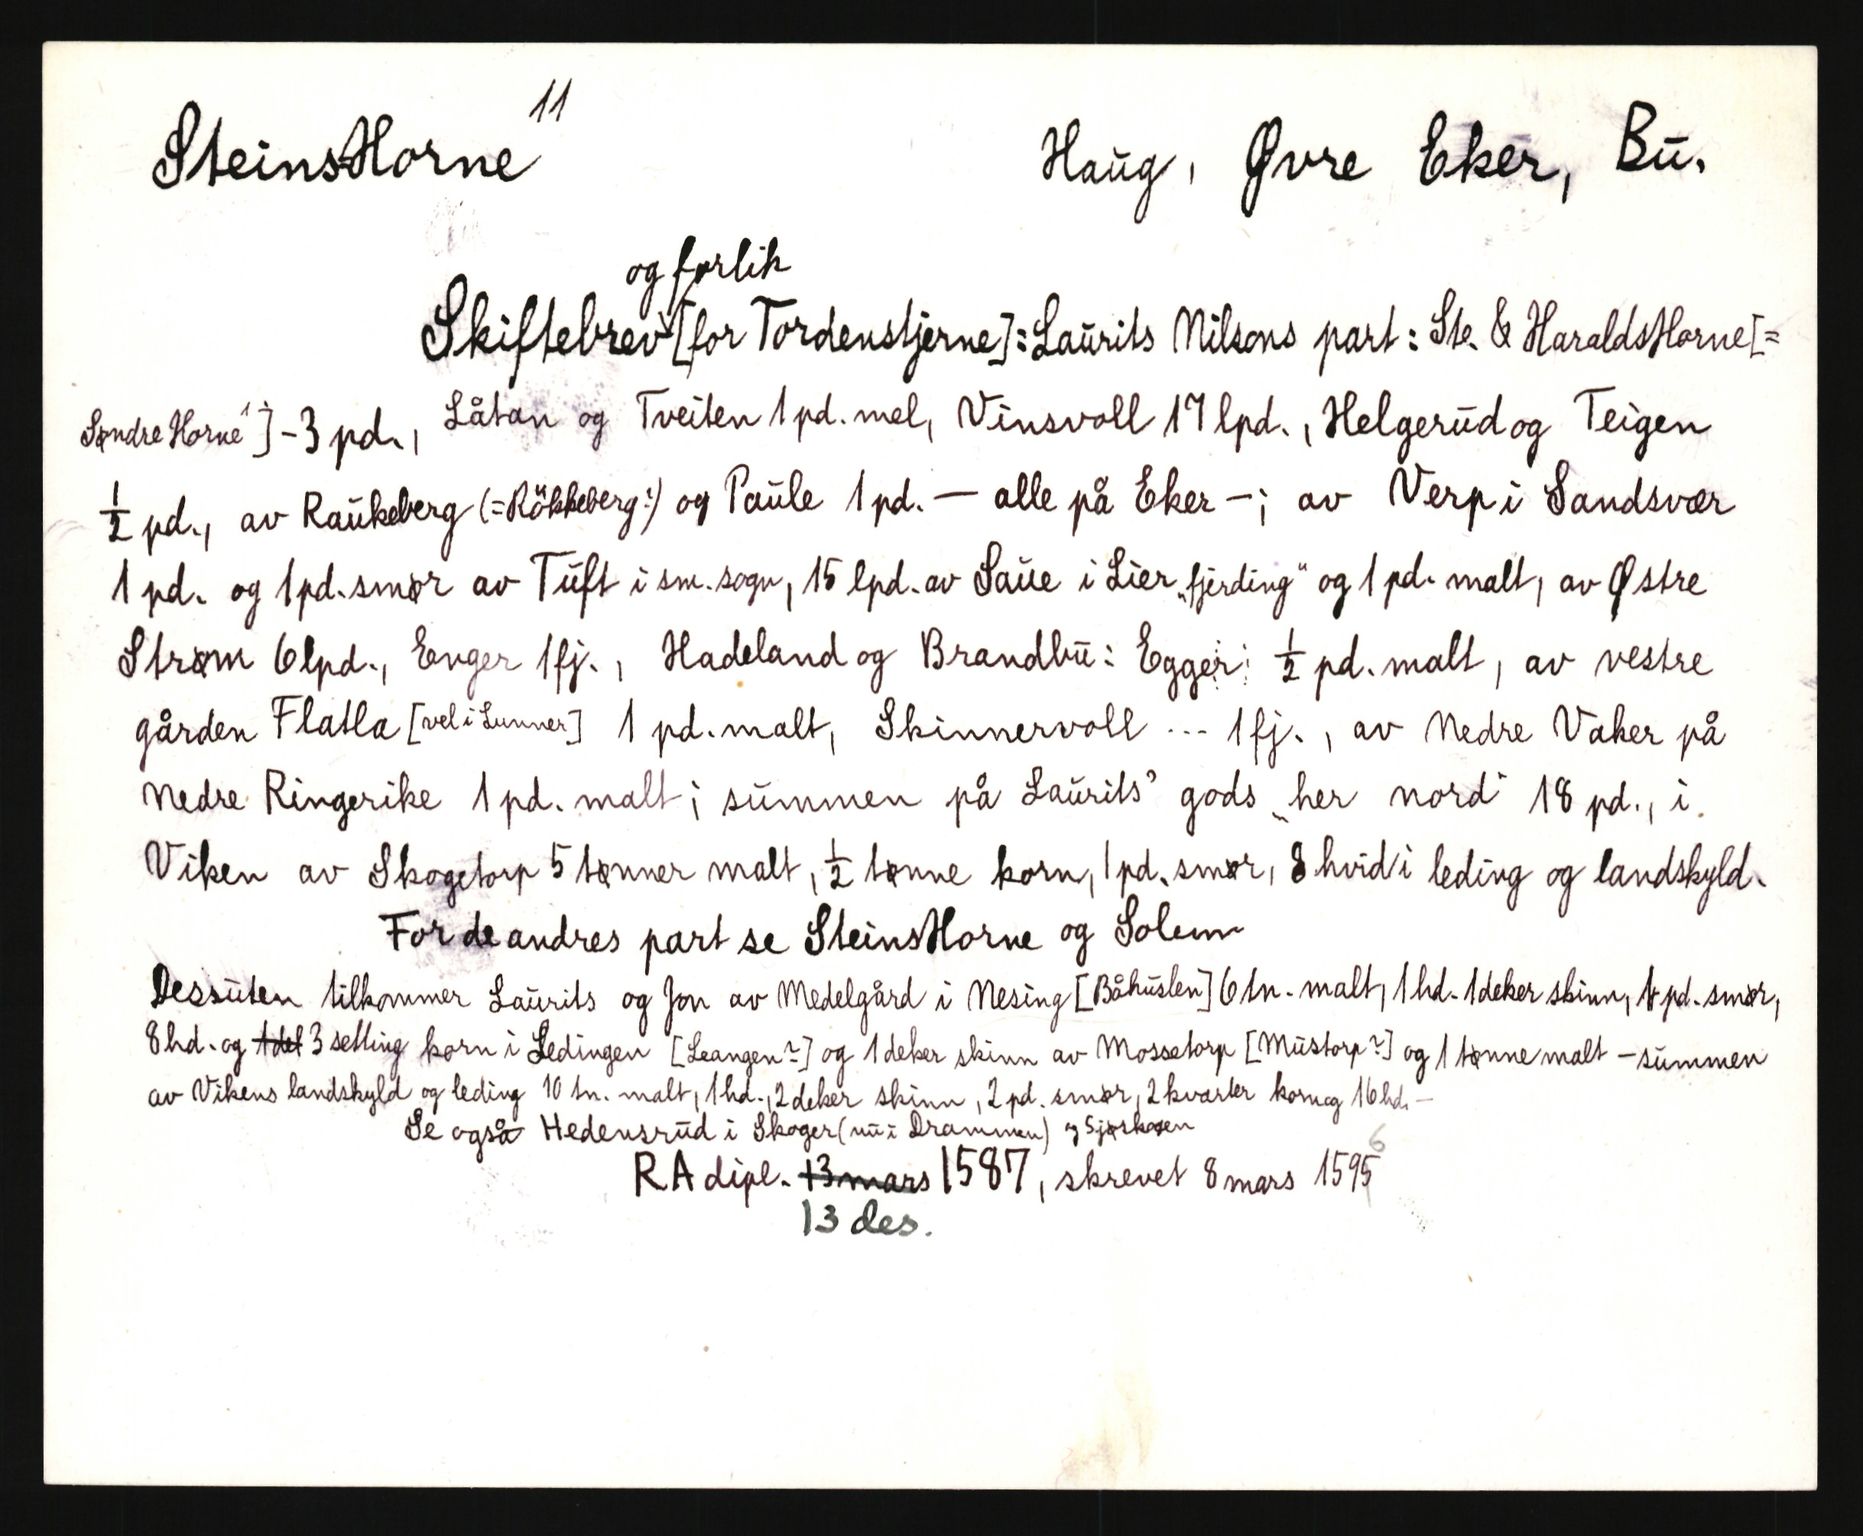 SteinsHorne 11 Haug, Øvre Eker, Bu.
og forlik
Skiftebrev [for Tordenstjerne]: Laurits Nilsons part: Ste. & HaraldsHorne [=
Søndre Horne 1] - 3 pd., Låtan og Tveiten 1 pd. mel, Vinsvoll 17 lpd., Helgerud og Teigen
½ pd., av Raukeberg (=Rökkeberg?) og Paule 1 pd. — alle på Eker -; av Verp i Sandsvær
1 pd. og 1 pd. smør av Tuft i sm. sogn, 15 lpd. av Saue i Lier „fjerding“ og 1 pd. malt, av Østre
Strøm 6 lpd., Enger 1 fj., Hadeland og Brandbu: Egger: ½ pd. malt, av vestre
gården Flatla [vel i Lunner] 1 pd. malt, Skinnervoll ... 1 fj., av Nedre Vaker på
Nedre Ringerike 1 pd. malt; summen på Laurits' gods „her nord“ 18 pd., i
Viken av Skogetorp 5 tønner malt, ½ tønne korn, 1 pd. smør, 8 hvid i leding og landskyld.
For de andres part se SteinsHorne og Solem
Dessuten tilkommer Laurits og Jon av Medelgård i Nesing [Båhuslen] 6 tn. malt, 1 hd. 1 deker skinn, 1 pd. smør,
8 hd. og 1 del 3 setting korn i Ledingen [Leangen?] og 1 deker skinn av Mossetorp [Mustorp?] og 1 tønne malt - summen
av Vikens landskyld og leding 10 tn. malt, 1 hd., 2 deker skinn, 2 pd. smør, 2 kvarter korn og 16 hd. -
Se også Hedensrud i Skoger (nu i Drammen) og Sjøskogen
RA dipl. 13 mars 1587, skrevet 8 mars 1595 6
13 des.